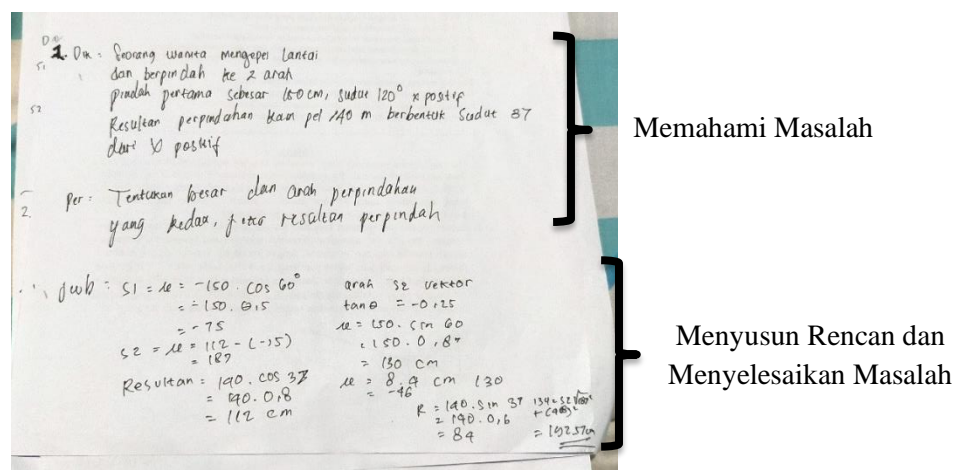 1. Dik : Seorang wanita mengepel Lantai
dan berpindah ke 2 arah
pindah pertama sebesar 150 cm, sudut 120° x positif
Resultan perpindahan kain pel 140 m berbentuk Sudut 37
dari x positif
Memahami Masalah
Per : Tentukan besar dan arah perpindahan
yang kedua, resultan perpindah
2.
Jwb : S1 = x = -150 . cos 60°
= -150 . 0,5
= -75
S2 = x = 112 - (-75)
= 187
Resultan = 140 . cos 37
= 140 . 0,8
= 112 cm
arah S2 vektor
tan θ = -0,25
x = 150 . sin 60
= 150 . 0,87
= 130 cm
= 8,4 cm 130
= -46
R = 140 . sin 37
= 140 . 0,6
= 84
= 192,57 cm
Menyusun Rencan dan
Menyelesaikan Masalah